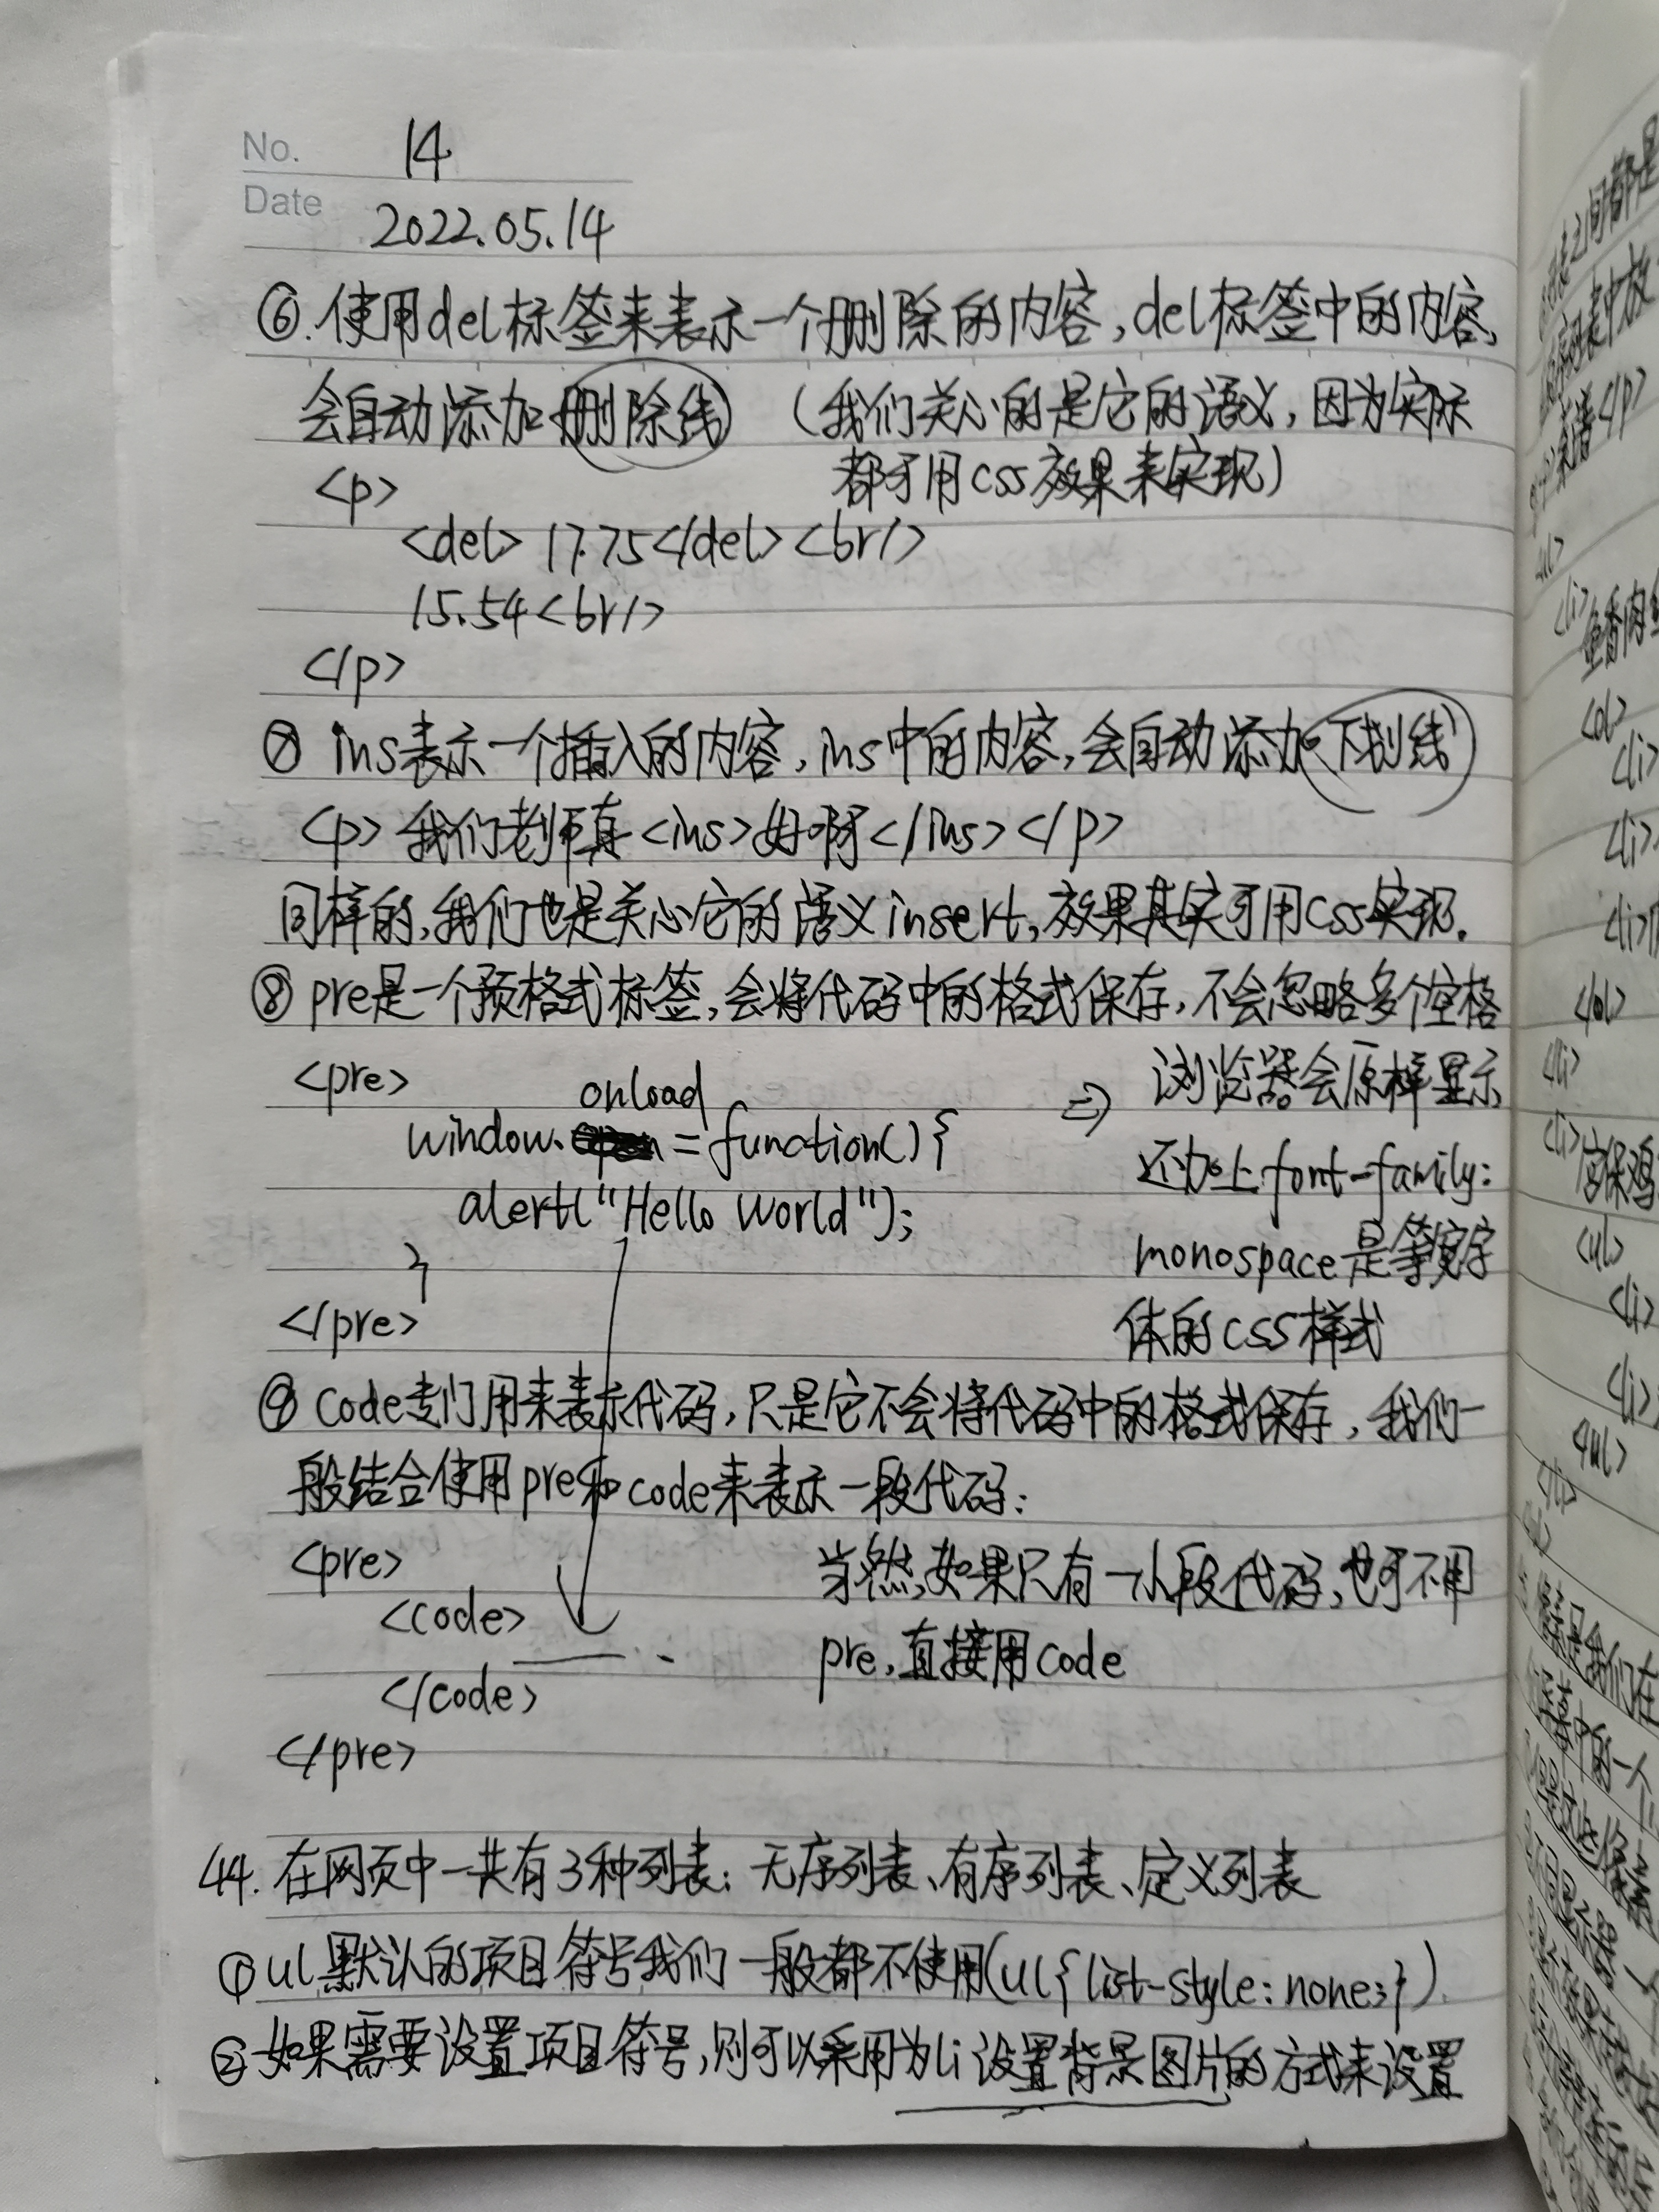 No. 14
Date 2022.05.14
⑥.使用del标签来表示一个删除的内容,del标签中的内容,
会自动添加删除线 (我们关心的是它的语义,因为实际
都可用css效果来实现)
<p>
<del>17.75</del><br/>
15.54<br/>
</p>
⑦ ins表示一个插入的内容,ins中的内容,会自动添加下划线
<p>我们老师真<ins>好啊</ins></p>
同样的,我们也是关心它的语义insert,效果其实可用css实现.
⑧ pre是一个预格式标签,会将代码中的格式保存,不会忽略多个空格
<pre>
window.onload=function(){
alert("Hello World");
}
</pre>
⇒ 浏览器会原样显示
还加上font-family:
monospace是等宽字
体的css样式
⑨ code专门用来表示代码,只是它不会将代码中的格式保存,我们一
般结合使用pre和code来表示一段代码:
<pre>
<code>
</code>
</pre>
当然,如果只有一小段代码,也可不用
pre,直接用code
44. 在网页中一共有3种列表:无序列表、有序列表、定义列表
①ul默认的项目符号我们一般都不使用(ul{list-style:none;})
②如果需要设置项目符号,则可以采用为li设置背景图片的方式来设置
<p>
<li>
<ol>
<li>
<li>
<li>
</ol>
</li>
<li>宫保鸡
<ul>
<li>
<li>
</ul>